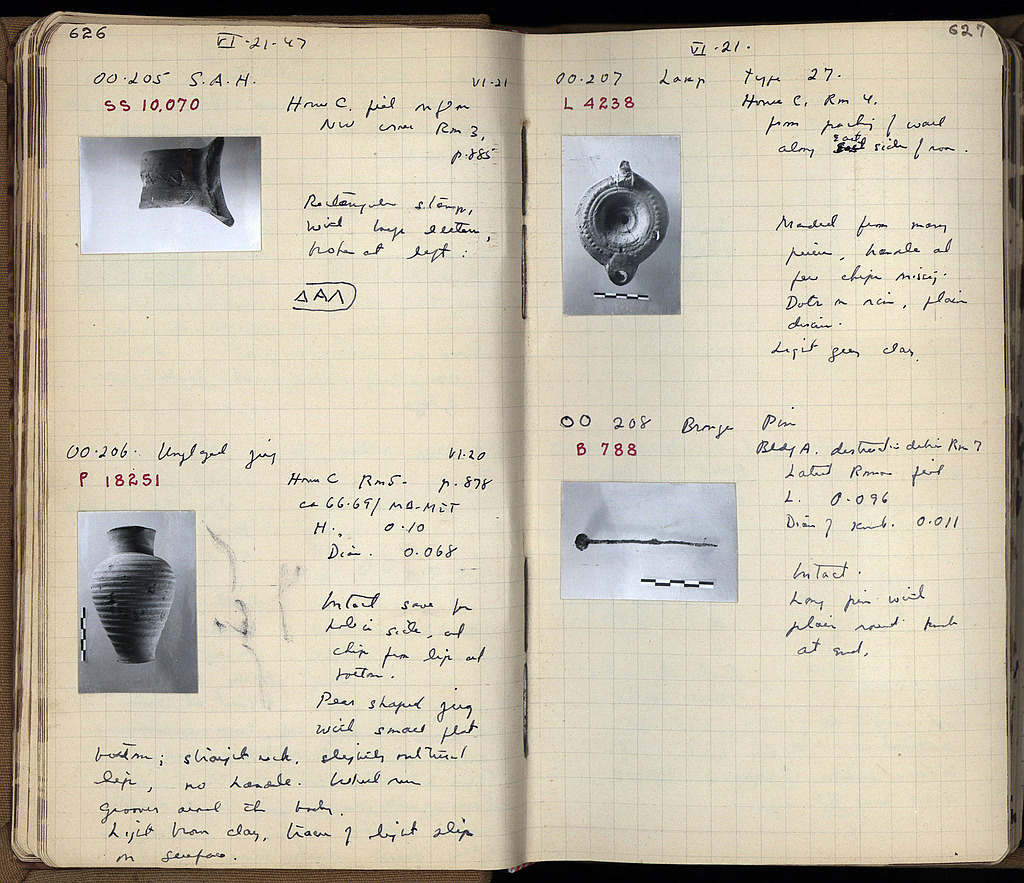 626
VI-21-47
OO·205 S.A.H. VI-21
SS 10,070
House C, fill
NW corner Rm 3,
p. 885
Rectangular stamp,
with large letters,
broken at left:
ΔΑΛ
OO·206· Unglazed jug VI-20
P 18251
House C Rm 5- p. 878
ca 66.69/
H. 0.10
Diam. 0.068
Intact save for
hole in side, and
chip from lip and
bottom.
Pear shaped jug
with small flat
bottom; straight neck, slightly
lip, no handle. Wheel run
grooves around the body.
Light brown clay, traces of light slip
on surface.
627
VI-21.
OO·207 Lamp type 27.
L 4238
House C, Rm 4.
from packing of wall
along East side of room.
Mended from many
pieces, handle and
few chips missing.
Dots on rim, plain
discus.
Light grey clay.
OO 208 Bronze Pin
B 788
Bldg A. destruction debris Rm 7
Latest Roman fill
L. 0.096
Diam of knob. 0.011
Intact.
Long pin with
plain round knob
at end.